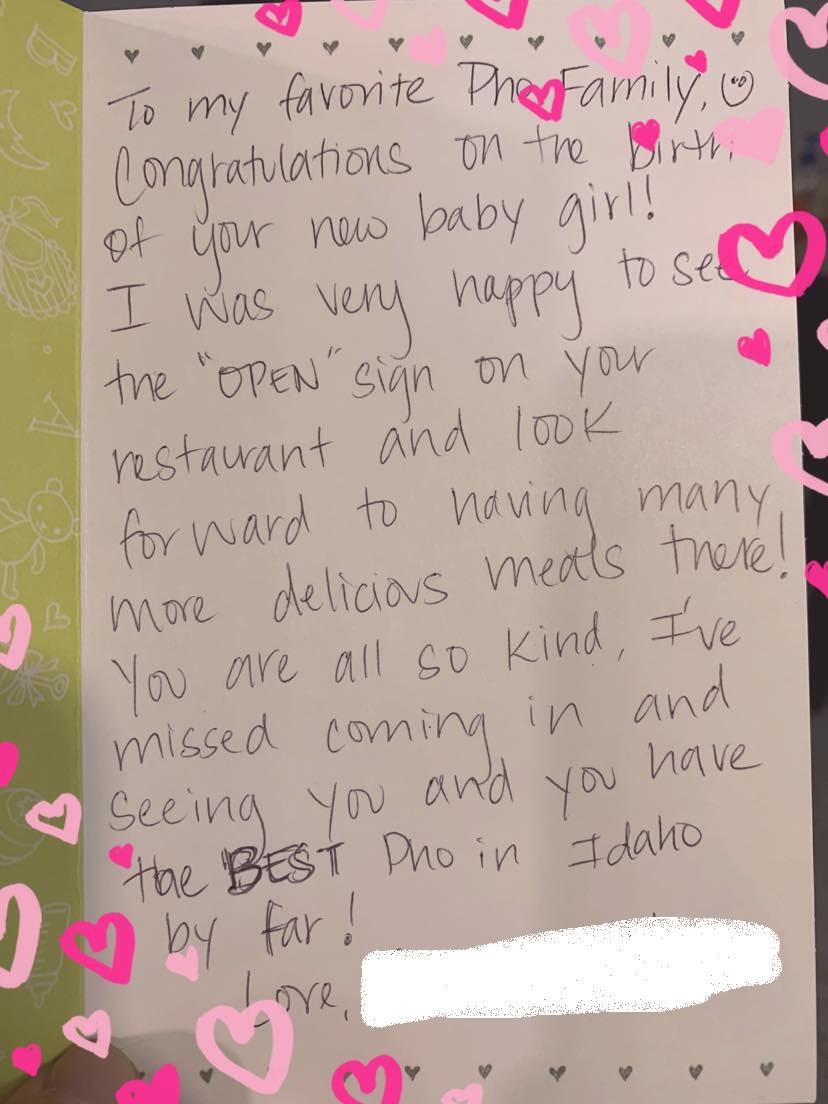 To my favorite Pho Family, ☺
Congratulations on the birth
of your new baby girl!
I was very happy to see
the "OPEN" sign on your
restaurant and look
forward to having many
more delicious meals there!
You are all so kind, I've
missed coming in and
seeing you and you have
the BEST Pho in Idaho
by far!
Love,